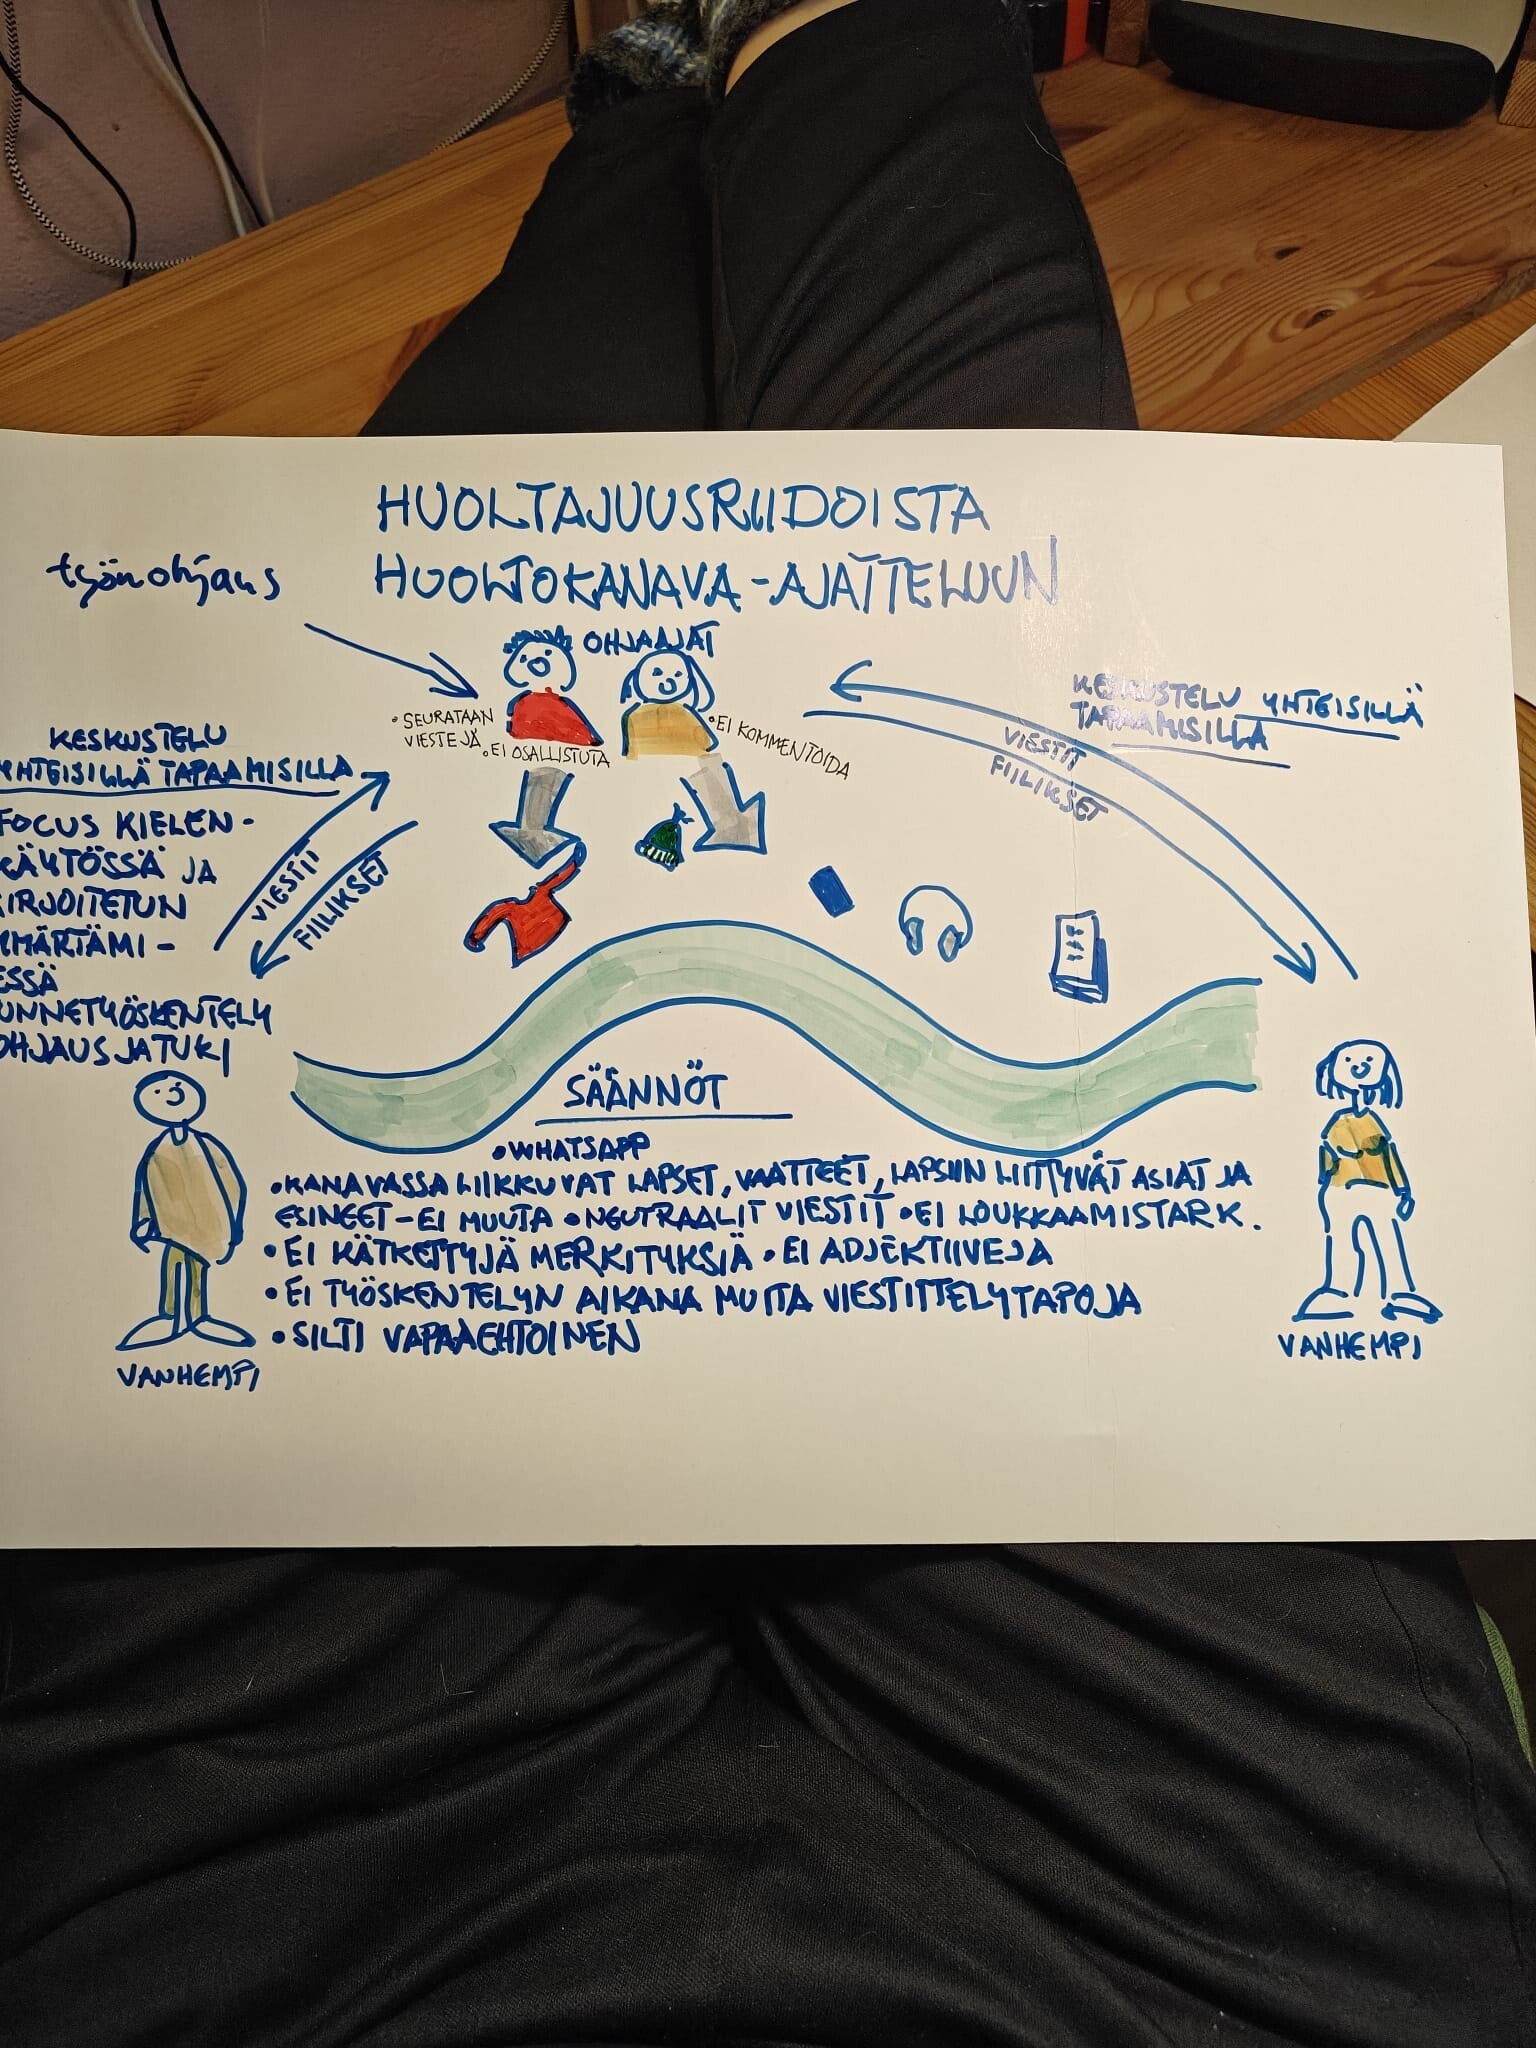 HUOLTAJUUSRIIDOISTA
HUOLTOKANAVA-AJATTELUUN
työnohjaus
OHJAAJAT
• SEURATAAN
VIESTEJÄ
• EI OSALLISTUTA
• EI KOMMENTOIDA
KESKUSTELU
YHTEISILLÄ TAPAAMISILLA
FOCUS KIELEN-
KÄYTÖSSÄ JA
KIRJOITETUN
YMMÄRTÄMI-
SESSÄ
TUNNETYÖSKENTELY
OHJAUS JA TUKI
VIESTIT
FIILIKSET
KESKUSTELU YHTEISILLÄ
TAPAAMISILLA
VIESTIT
FIILIKSET
SÄÄNNÖT
• WHATSAPP
• KANAVASSA LIIKKUVAT LAPSET, VAATTEET, LAPSIIN LIITTYVÄT ASIAT JA
ESINEET - EI MUUTA • NEUTRAALIT VIESTIT • EI LOUKKAAMISTARK.
• EI KÄTKETTYJÄ MERKITYKSIÄ • EI ADJEKTIIVEJA
• EI TYÖSKENTELYN AIKANA MUITA VIESTITTELYTAPOJA
• SILTI VAPAAEHTOINEN
VANHEMPI
VANHEMPI